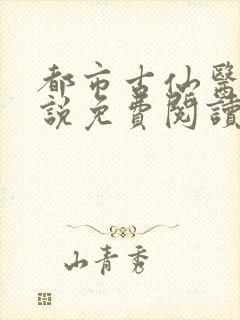 都市古仙醫
說免費閱讀
山青秀